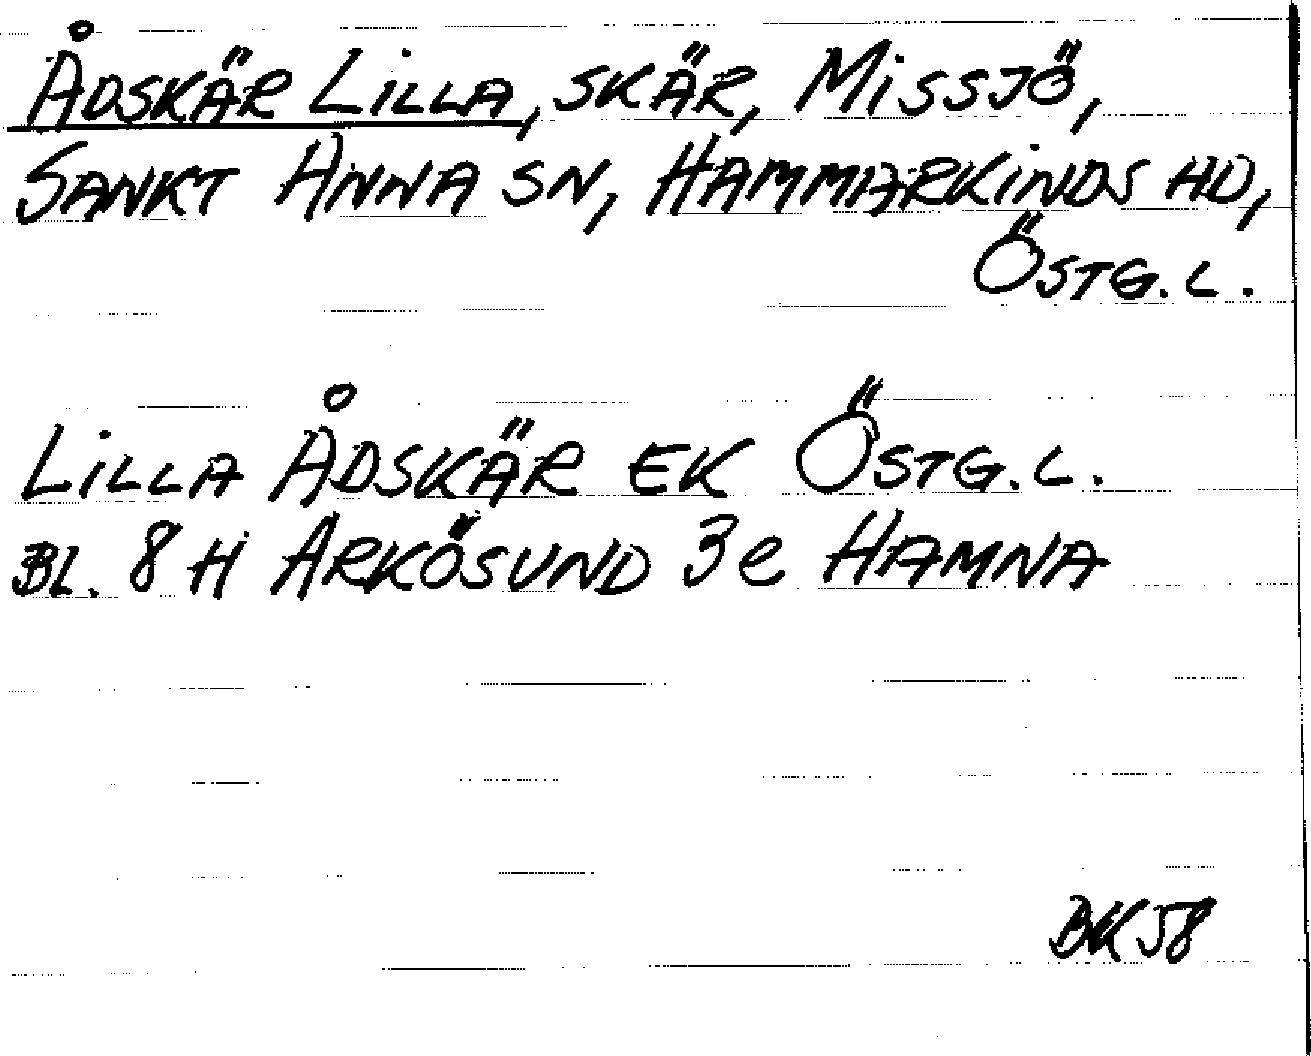 ÅDSKÄR LILLA, SKÄR, MISSJÖ,
SANKT ANNA SN, HAMMARKINDS HD,
ÖSTG. L.
LILLA ÅDSKÄR EK ÖSTG. L.
BL. 8 H ARKÖSUND 3e HAMNA
BK58